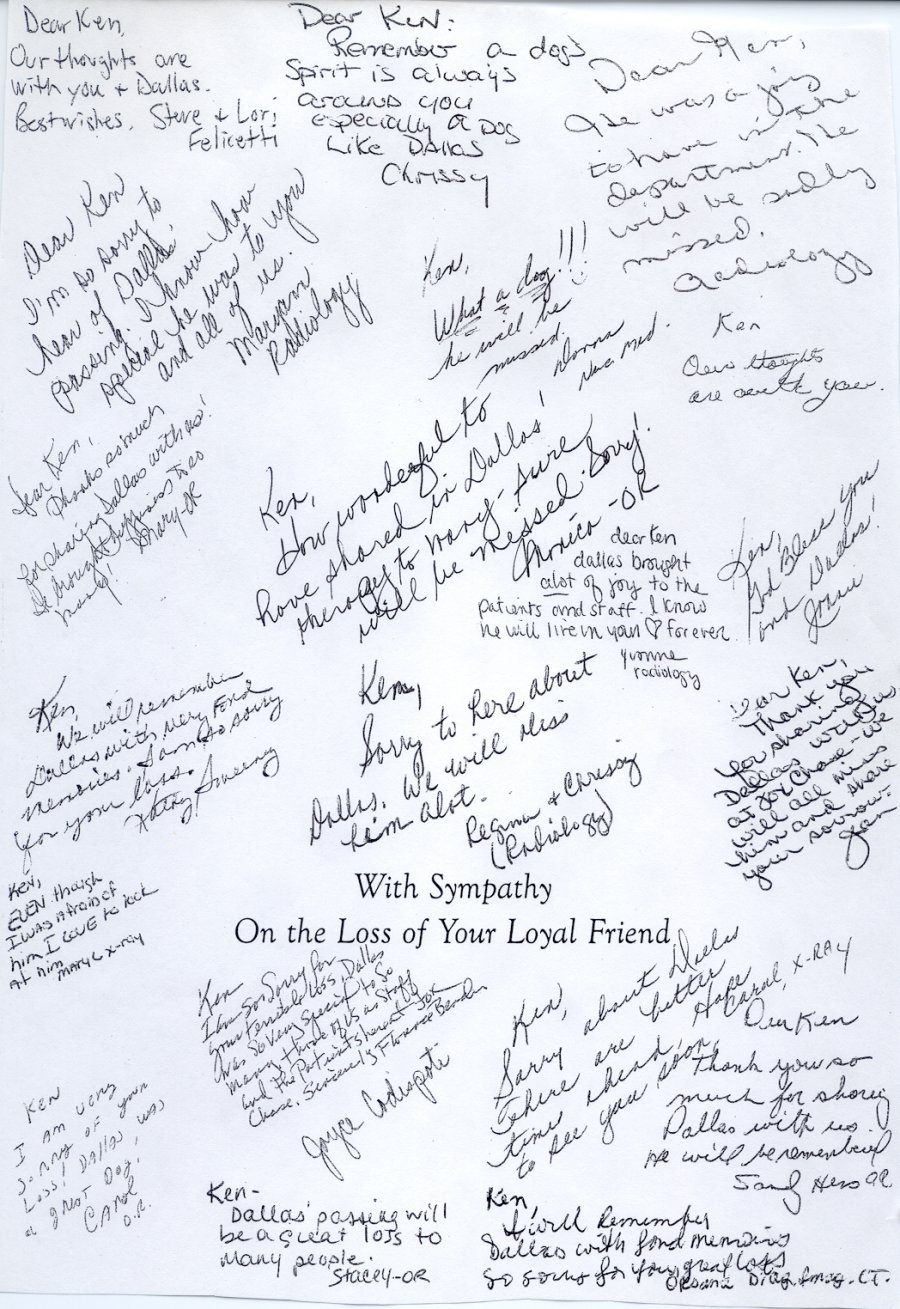 Dear Ken,
Our thoughts are
with you + Dallas.
Best wishes, Steve & Lori
Felicetti
Dear Ken:
Remember a dog's
Spirit is always
around you
especially a Dog
Like Dallas
Chrissy
Dear Ken,
He was a joy
to have in the
department. He
will be sadly
missed.
Radiology
Dear Ken
I'm so sorry to
hear of Dallas'
passing. I know how
special he was to you
and all of us.
Maryann
Radiology
Ken,
What a dog!!!
he will be
missed.
Donna
Nuc Med.
Ken
Our thoughts
are with you.
Dear Ken,
Thanks so much
for sharing Dallas with us!
He brought happiness to so
many! Mary-OR
Ken,
How wonderful to
have shared in Dallas'
therapy to many - sure
will be missed. Sorry!
Monica - OR
dear Ken
dallas brought
alot of joy to the
patients and staff. I know
he will live in your ♡ forever
Yvonne
radiology
Ken,
God Bless You
and Dallas!
Ken,
We will remember
Dallas with very fond
memories. I am so sorry
for your loss.
Kathy Sweeney
Ken,
Sorry to here about
Dallas. We will miss
him alot.
Regina & Chrissy
(Radiology)
Dear Ken,
Thank you
for sharing
Dallas with us
at JFK Chase - We
will all miss
him and share
your sorrow.
Jan
Ken,
EVEN though
I was afraid of
him I LOVE to look
At him MARY L X-RAY
With Sympathy
On the Loss of Your Loyal Friend
Ken
I am so sorry for
your terrible loss, Dallas
was so very special to so
many those of us as staff
and the patients here at JFK
Chase. Sincerely Florence Bender
Joyce Codispoti
Ken,
Sorry about Dallas
There are better
times ahead, Hope
to see you soon,
Carol, X-RAY
Dear Ken
Thank you so
much for sharing
Dallas with us.
He will be remembered
Sandy Hess OR
Ken
I am very
sorry of your
Loss! Dallas was
a great Dog,
CAROL
O.R.
Ken-
Dallas' passing will
be a great loss to
many people.
Stacey-OR
Ken,
I will Remember
Dallas with fond memories
So sorry for your great loss
Oksana Diag. Imag. CT.